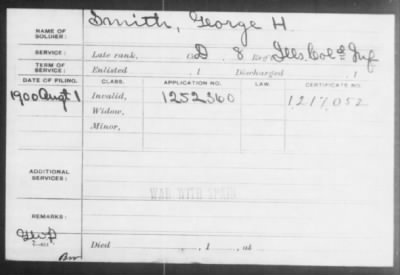 NAME OF SOLDIER: Smith, George H.
SERVICE: Late rank, Co. D, 8 Reg't Ills. Col'd Inf
TERM OF SERVICE: Enlisted , 1 Discharged , 1
DATE OF FILING. CLASS. APPLICATION NO. LAW. CERTIFICATE NO.
1900 Augt 1 Invalid, 1252360 1217,052
Widow,
Minor,
ADDITIONAL SERVICES:
WAR WITH SPAIN
REMARKS:
Died , 1 , at